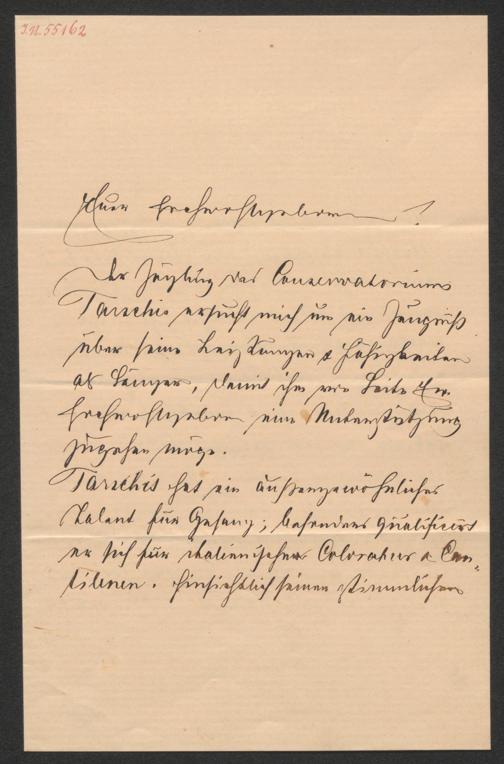 I.N. 55162
Euer Hochwohlgeboren!
Der Zögling des Conservatoriums
Tarschis ersucht mich um ein Zeugniß
über seine Leistungen & Fähigkeiten
als Sänger, damit ihm von Seite Eu.
Hochwohlgeboren eine Unterstützung
zugehen möge.
Tarschis hat ein außergewöhnliches
Talent für Gesang; besonders qualificirt
er sich für italienischen Coloratur & Can-
tilenen. Hinsichtlich seiner stimmlichen